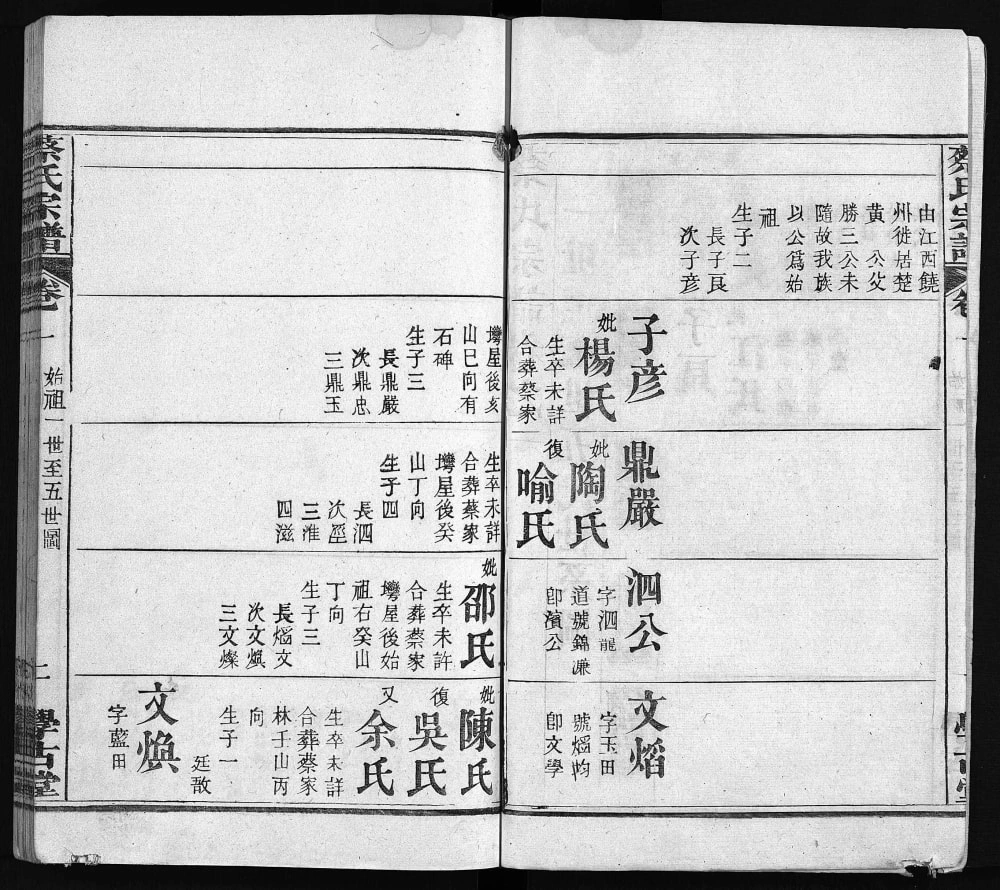 蔡氏宗譜
卷一
學古堂
由江西饒
州徙居楚
黃公父
勝三公未
隨故我族
以公爲始
祖
生子二
長子艮
次子彦
子彦
妣楊氏
生卒未詳
合葬蔡家
塆屋後亥
山巳向有
石碑
生子三
長鼎嚴
次鼎忠
三鼎玉
鼎嚴
妣陶氏
復喻氏
生卒未詳
合葬蔡家
塆屋後癸
山丁向
生子四
長泗
次涇
三淮
四滋
泗公
字泗龍
道號錦濂
卽濱公
妣邵氏
生卒未許
合葬蔡家
塆屋後始
祖右癸山
丁向
生子三
長熖文
次文煥
三文燦
文熖
字玉田
號熖昀
卽文學
妣陳氏
復吳氏
又余氏
生卒未詳
合葬蔡家
林壬山丙
向
生子一
廷敔
文煥
字藍田
蔡氏宗譜
卷一
始祖一世至五世圖
二
學古堂